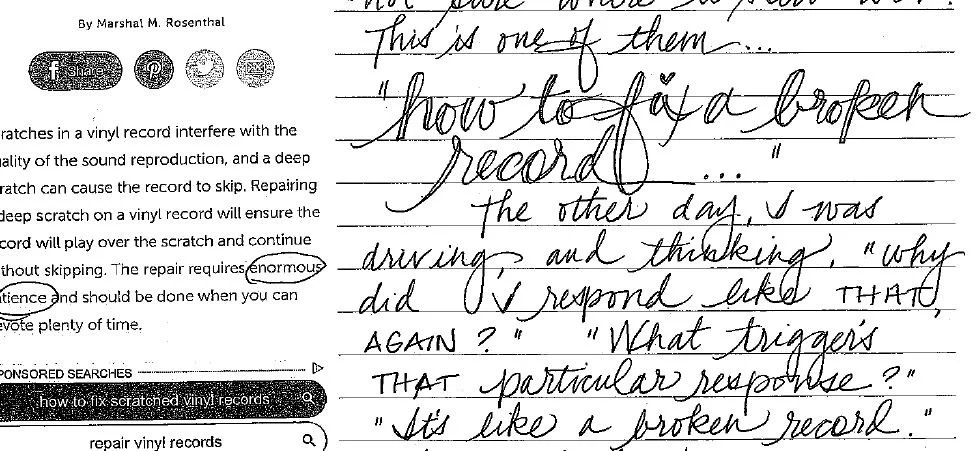 By Marshal M. Rosenthal
f share
ratches in a vinyl record interfere with the
ality of the sound reproduction, and a deep
ratch can cause the record to skip. Repairing
deep scratch on a vinyl record will ensure the
cord will play over the scratch and continue
thout skipping. The repair requires enormous
tience and should be done when you can
evote plenty of time.
PONSORED SEARCHES
how to fix scratched vinyl records
repair vinyl records
not sure where
This is one of them...
"how to fix a broken
record ... "
The other day, I was
driving, and thinking, "Why
did I respond like THAT,
AGAIN?" "What trigger's
THAT particular response?"
"It's like a broken record."